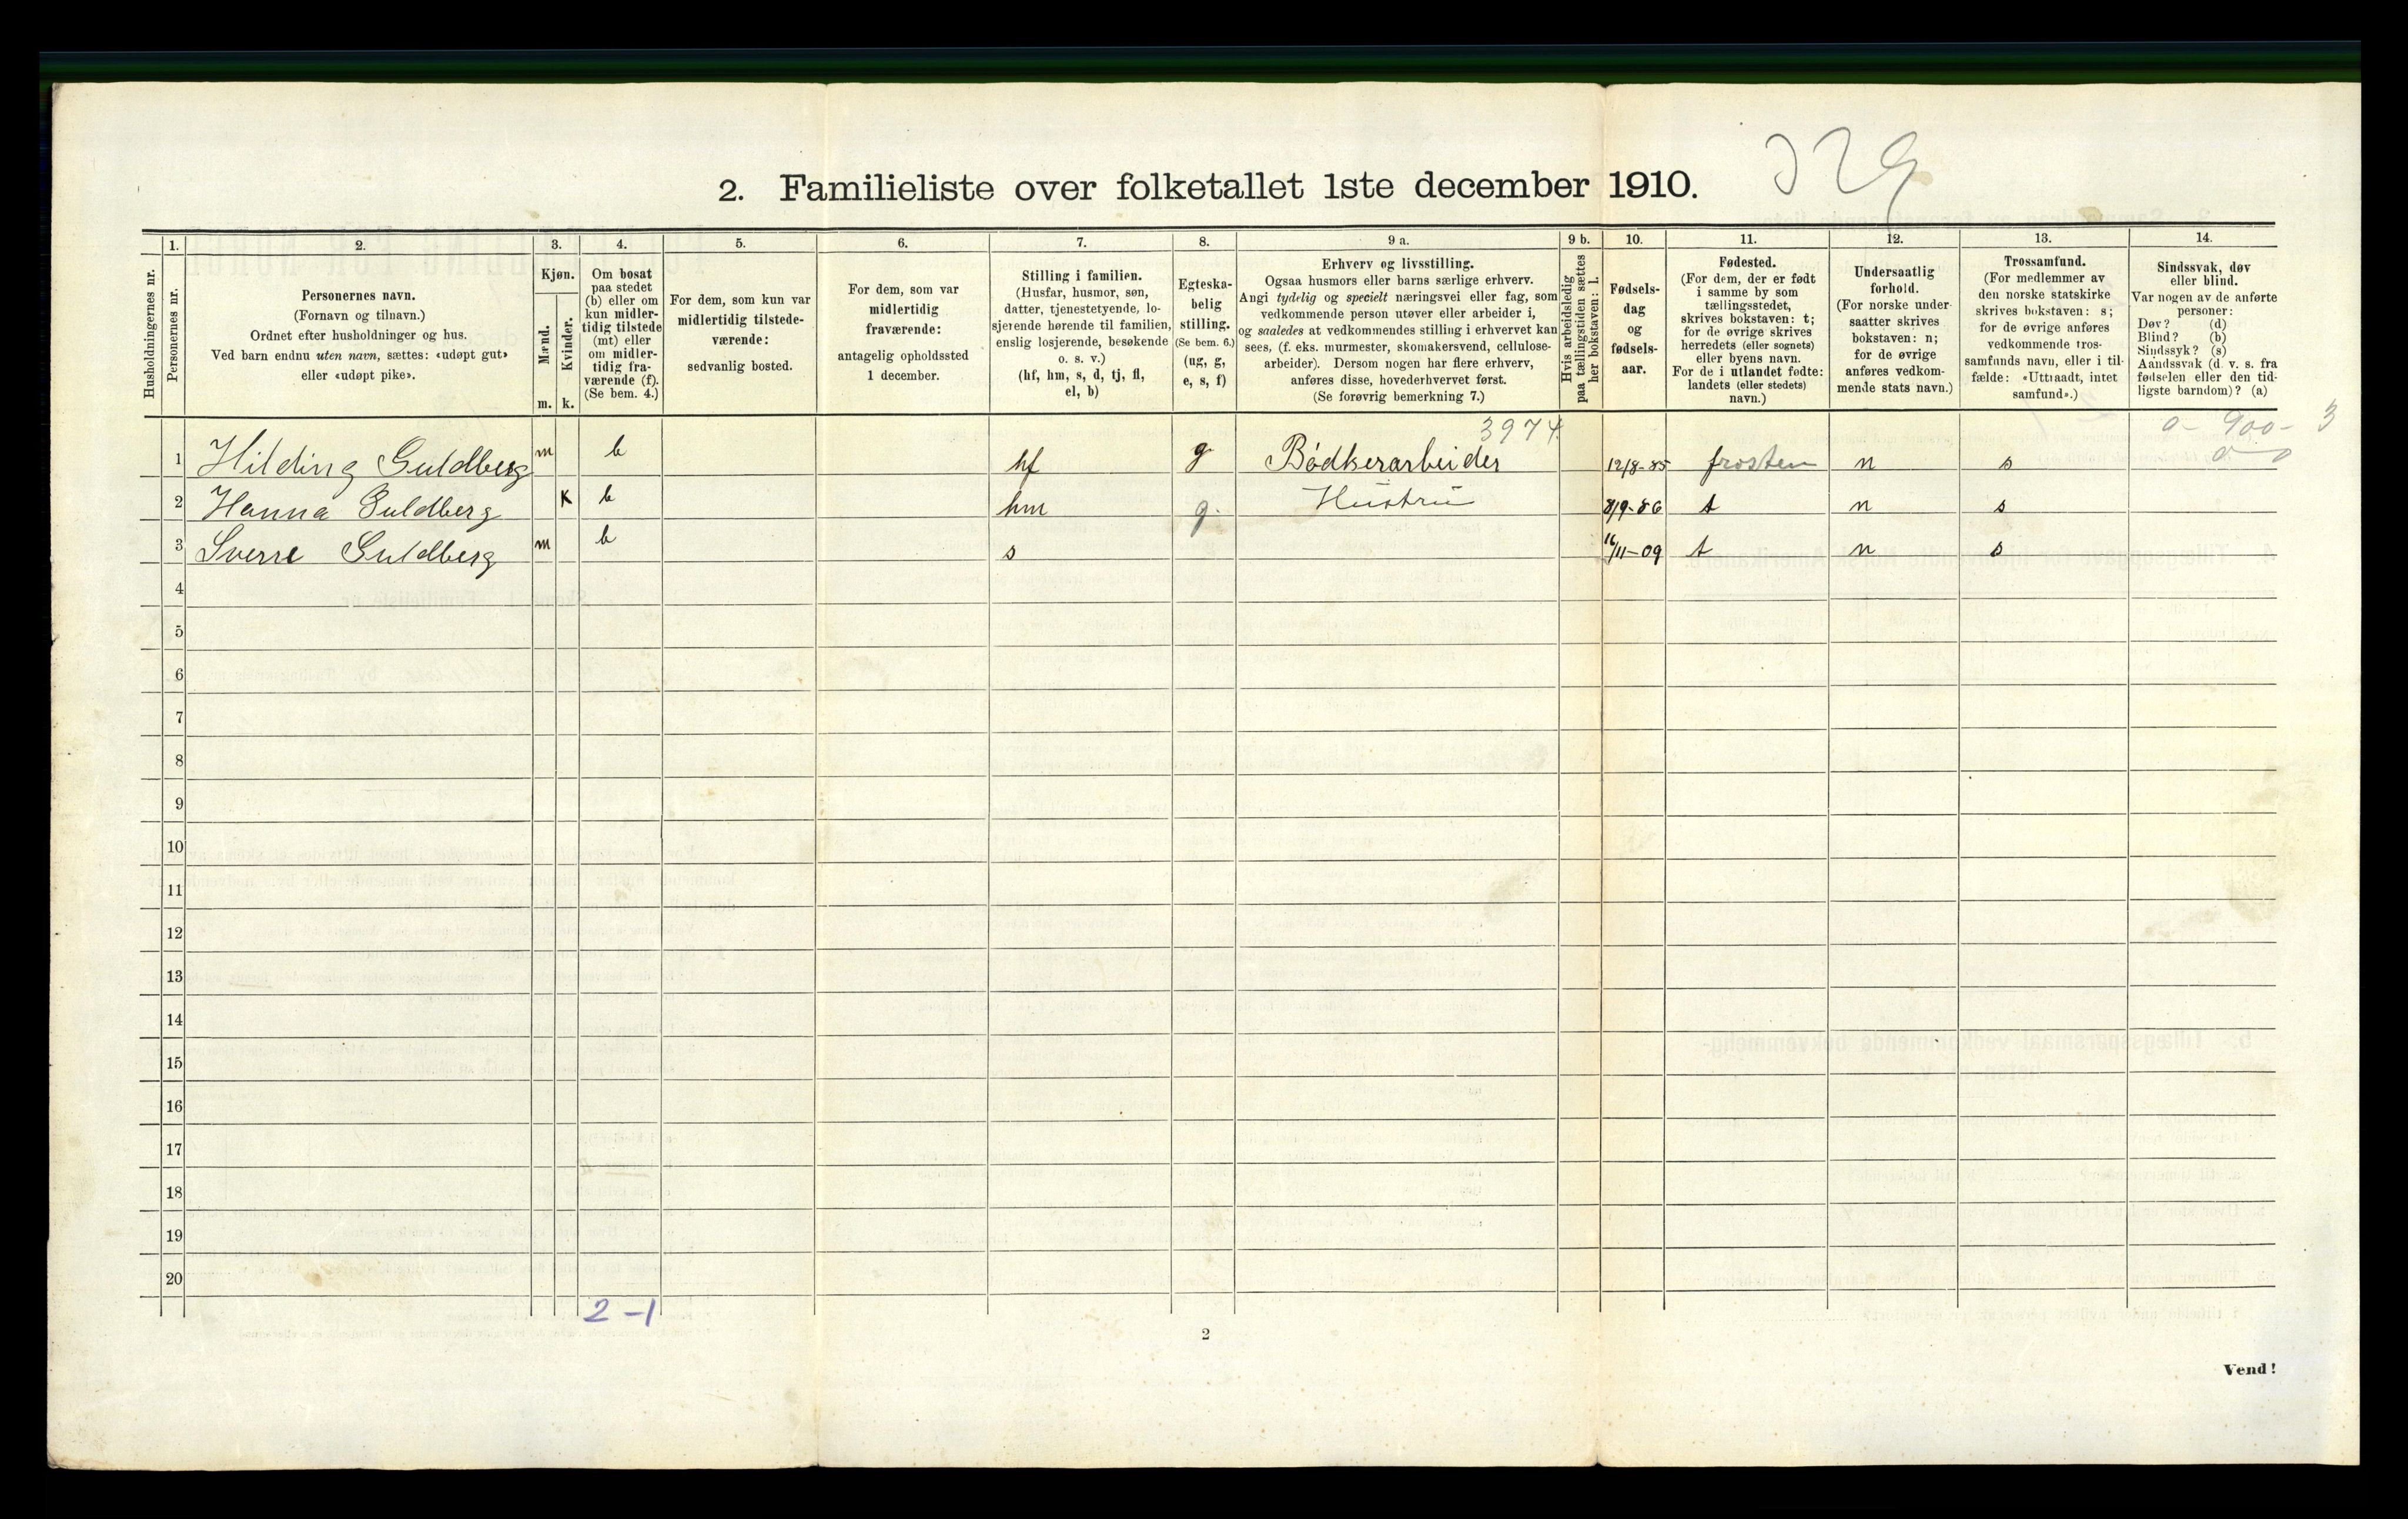 329
2. Familieliste over folketallet 1ste december 1910.
Husholdningernes nr.
1.
Personernes nr.
2.
Personernes navn.
(Fornavn og tilnavn.)
Ordnet efter husholdninger og hus.
Ved barn endnu uten navn, sættes: «udøpt gut»
eller «udøpt pike».
3.
Kjøn.
Mænd.
m.
Kvinder.
k.
4.
Om bosat
paa stedet
(b) eller om
kun midler-
tidig tilstede
(mt) eller
om midler-
tidig fra-
værende (f).
(Se bem. 4.)
5.
For dem, som kun var
midlertidig tilstede-
værende:
sedvanlig bosted.
6.
For dem, som var
midlertidig
fraværende:
antagelig opholdssted
1 december.
7.
Stilling i familien.
(Husfar, husmor, søn,
datter, tjenestetyende, lo-
sjerende hørende til familien,
enslig losjerende, besøkende
o. s. v.)
(hf, hm, s, d, tj, fl,
el, b)
8.
Egteska-
belig
stilling.
(Se bem. 6.)
(ug, g,
e, s, f)
9 a.
Erhverv og livsstilling.
Ogsaa husmors eller barns særlige erhverv.
Angi tydelig og specielt næringsvei eller fag, som
vedkommende person utøver eller arbeider i,
og saaledes at vedkommendes stilling i erhvervet kan
sees, (f. eks. murmester, skomakersvend, cellulose-
arbeider). Dersom nogen har flere erhverv,
anføres disse, hovederhvervet først.
(Se forøvrig bemerkning 7.)
9 b.
Hvis arbeidsledig
paa tællingstiden sættes
her bokstaven: l.
10.
Fødsels-
dag
og
fødsels-
aar.
11.
Fødested.
(For dem, der er født
i samme by som
tællingsstedet,
skrives bokstaven: t;
for de øvrige skrives
herredets (eller sognets)
eller byens navn.
For de i utlandet fødte:
landets (eller stedets)
navn.)
12.
Undersaatlig
forhold.
(For norske under-
saatter skrives
bokstaven: n;
for de øvrige
anføres vedkom-
mende stats navn.)
13.
Trossamfund.
(For medlemmer av
den norske statskirke
skrives bokstaven: s;
for de øvrige anføres
vedkommende tros-
samfunds navn, eller i til-
fælde: «Uttraadt, intet
samfund».)
14.
Sindssvak, døv
eller blind.
Var nogen av de anførte
personer:
Døv? (d)
Blind? (b)
Sindssyk? (s)
Aandssvak (d. v. s. fra
fødselen eller den tid-
ligste barndom)? (a)
3974 0-900-3
0 0
1 Hilding Guldberg m b hf g Bødkerarbeider 12/8-85 frosten n s
2 Hanna Guldberg k b hm g. Hustru 8/9-86 t n s
3 Sverre Guldberg m b s 16/11-09 t n s
4
5
6
7
8
9
10
11
12
13
14
15
16
17
18
19
20
2-1
2
Vend!